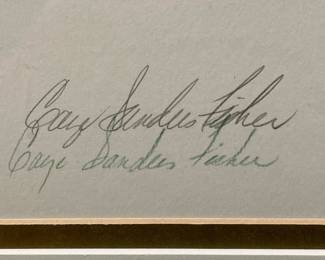 Gaye Sanders Fisher
Gaye Sanders Fisher